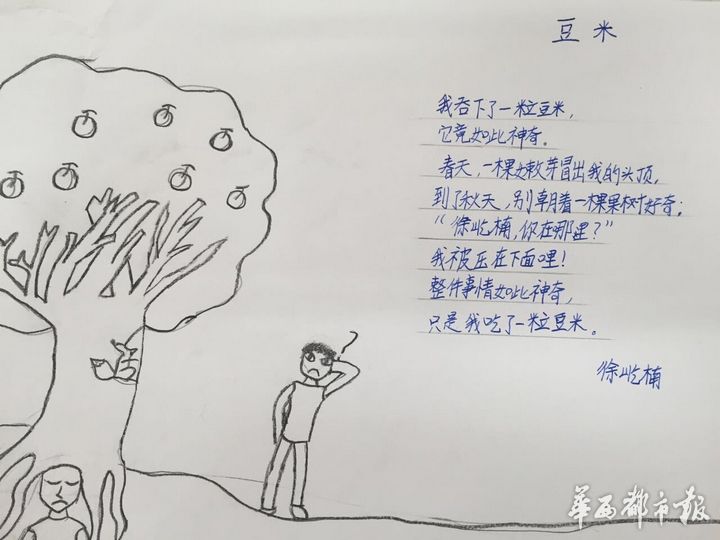 豆米
我吞下了一粒豆米，
它竟如此神奇。
春天，一棵嫩芽冒出我的头顶，
到了秋天，别朝着一棵果树好奇：
“徐屹楠，你在哪里？”
我被压在下面哩！
整件事情如此神奇，
只是我吃了一粒豆米。
徐屹楠
?
华西都市报